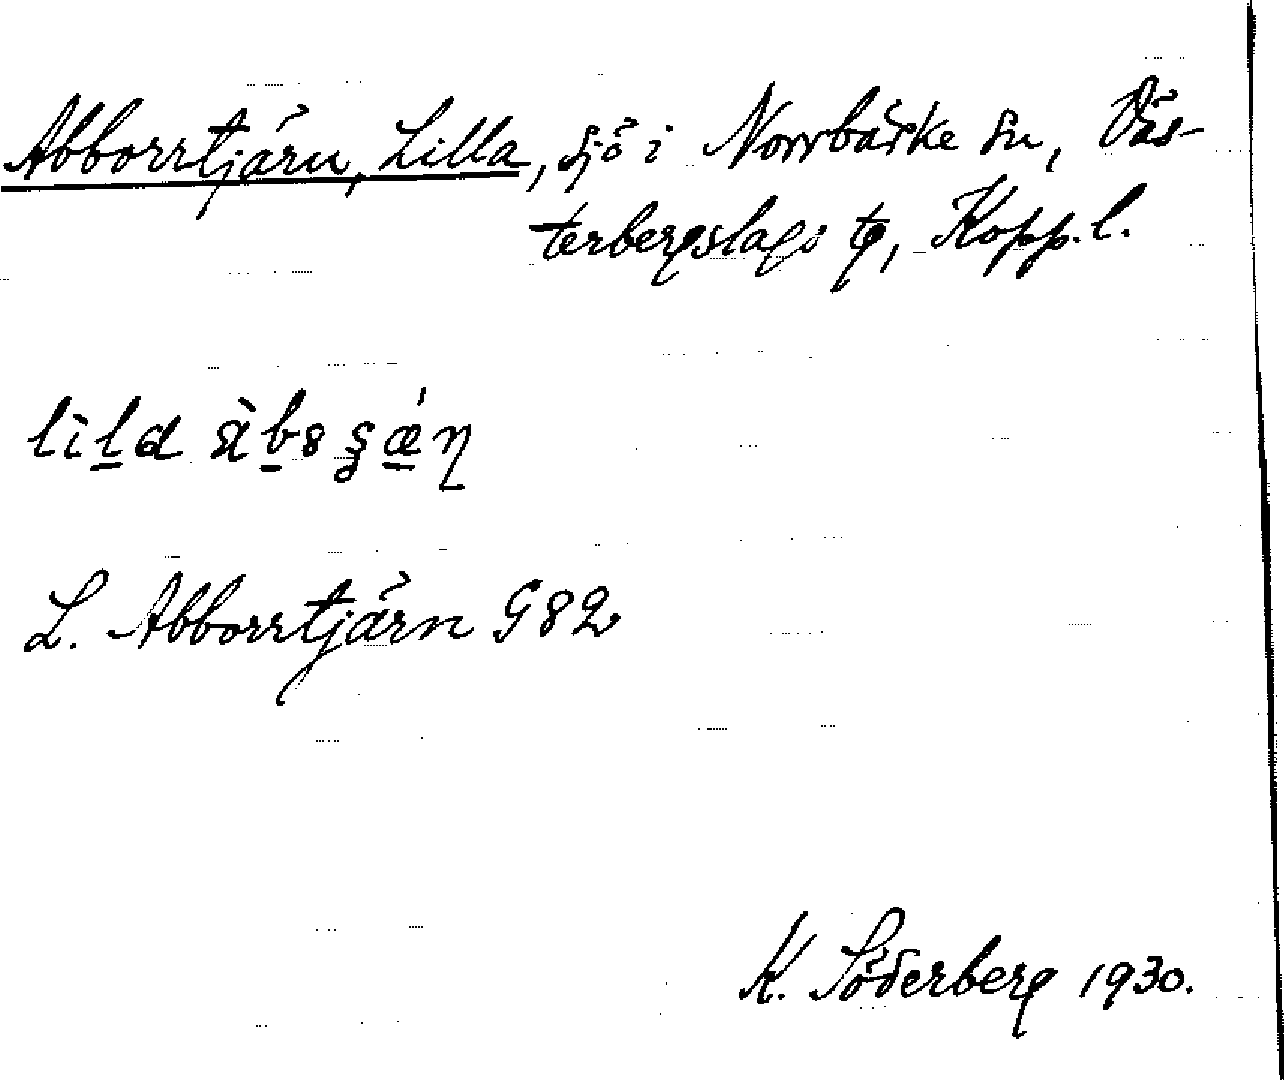 Abborrtjärn, Lilla, sjö i Norrbärke sn, Väs-
terbergslags tg, Kopp. l.
L. Abborrtjärn G82
K. Söderberg 1930.